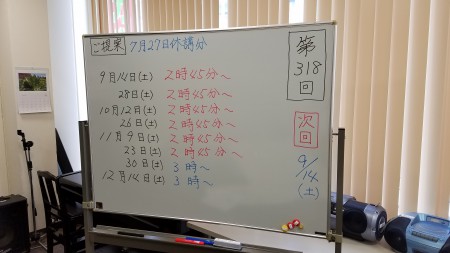 ご提案 7月27日休講分
9月14日(土) 2時45分～
28日(土) 2時45分～
10月12日(土) 2時45分～
26日(土) 2時45分～
11月9日(土) 2時45分～
23日(土) 2時45分～
30日(土) 3時～
12月14日(土) 3時～
第318回
次回
9/14(土)